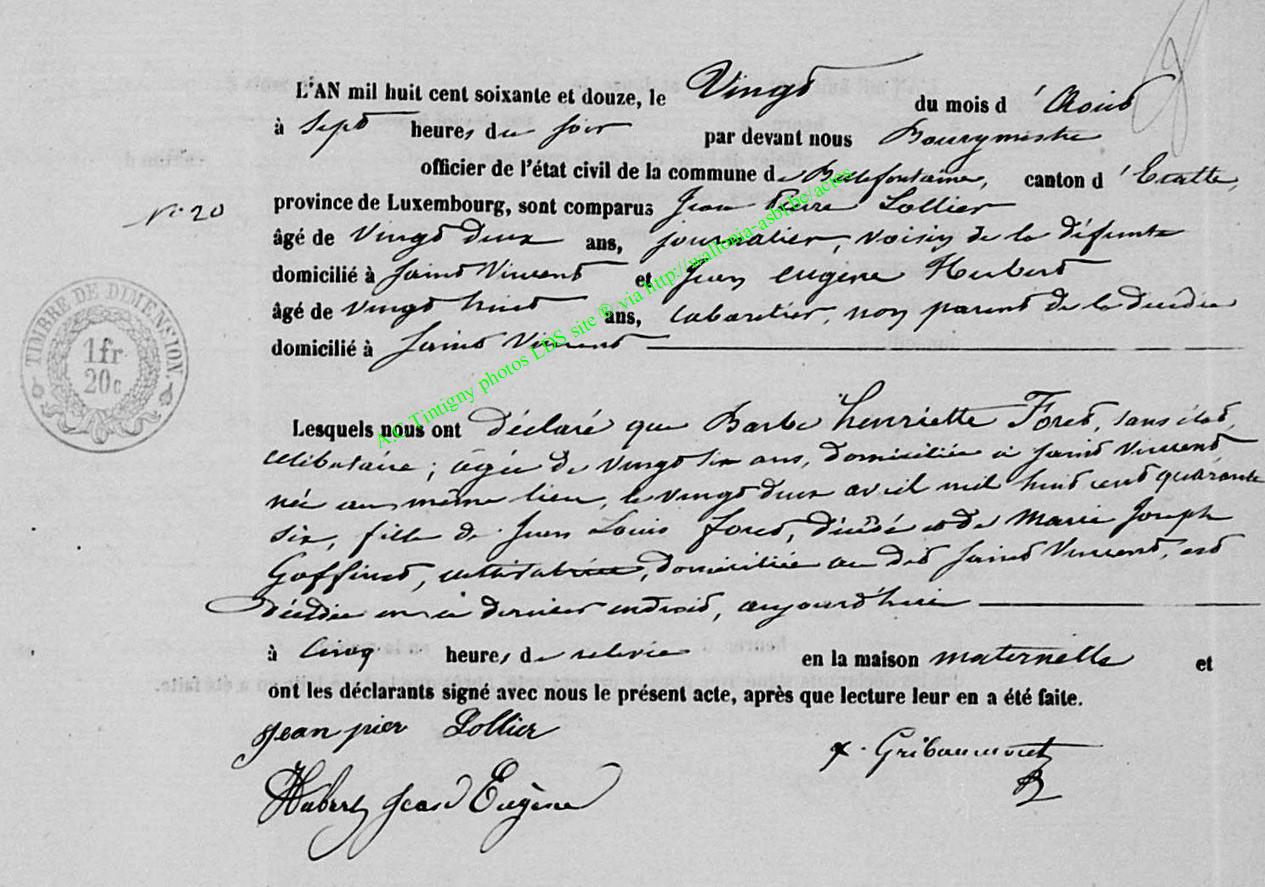 L'AN mil huit cent soixante et douze, le Vingt du mois d'Août
à sept heures du soir par devant nous Bourgmestre
officier de l'état civil de la commune de Bellefontaine, canton d'Etalle,
N° 20
province de Luxembourg, sont comparus Jean Pierre Lollier
âgé de vingt deux ans, journalier, voisin de la défunte
domicilié à Saint Vincent et Jean Eugène Hubert
âgé de vingt huit ans, cabaretier, non parent de la décédée
domicilié à Saint Vincent
TIMBRE DE DIMENSION
1fr
20c
A.C. Tintigny photos LDS site ® via http://wallonia-asbl.be/actes
Lesquels nous ont déclaré que Barbe henriette Foret, sans état,
célibataire; agée de vingt six ans, domiciliée à Saint Vincent
née au même lieu, le vingt deux avril mil huit cent quarante
six, fille de Jean Louis Foret, décédé et de Marie Joseph
Goffinet, domiciliée au dit Saint Vincent, est
décédée en ce dernier endroit, aujourd'hui
à Cinq heures de relevée en la maison maternelle et
ont les déclarants signé avec nous le présent acte, après que lecture leur en a été faite.
Jean pier Lollier
Hubert Jean Eugène